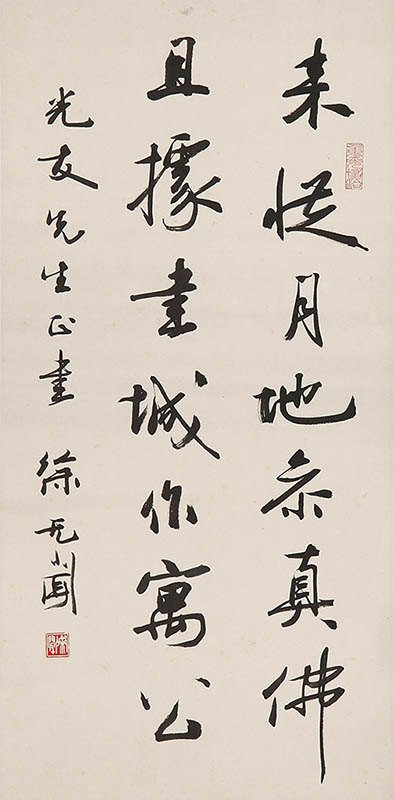 未從月地參真佛
且據書城作寓公
光友先生正書 徐无聞